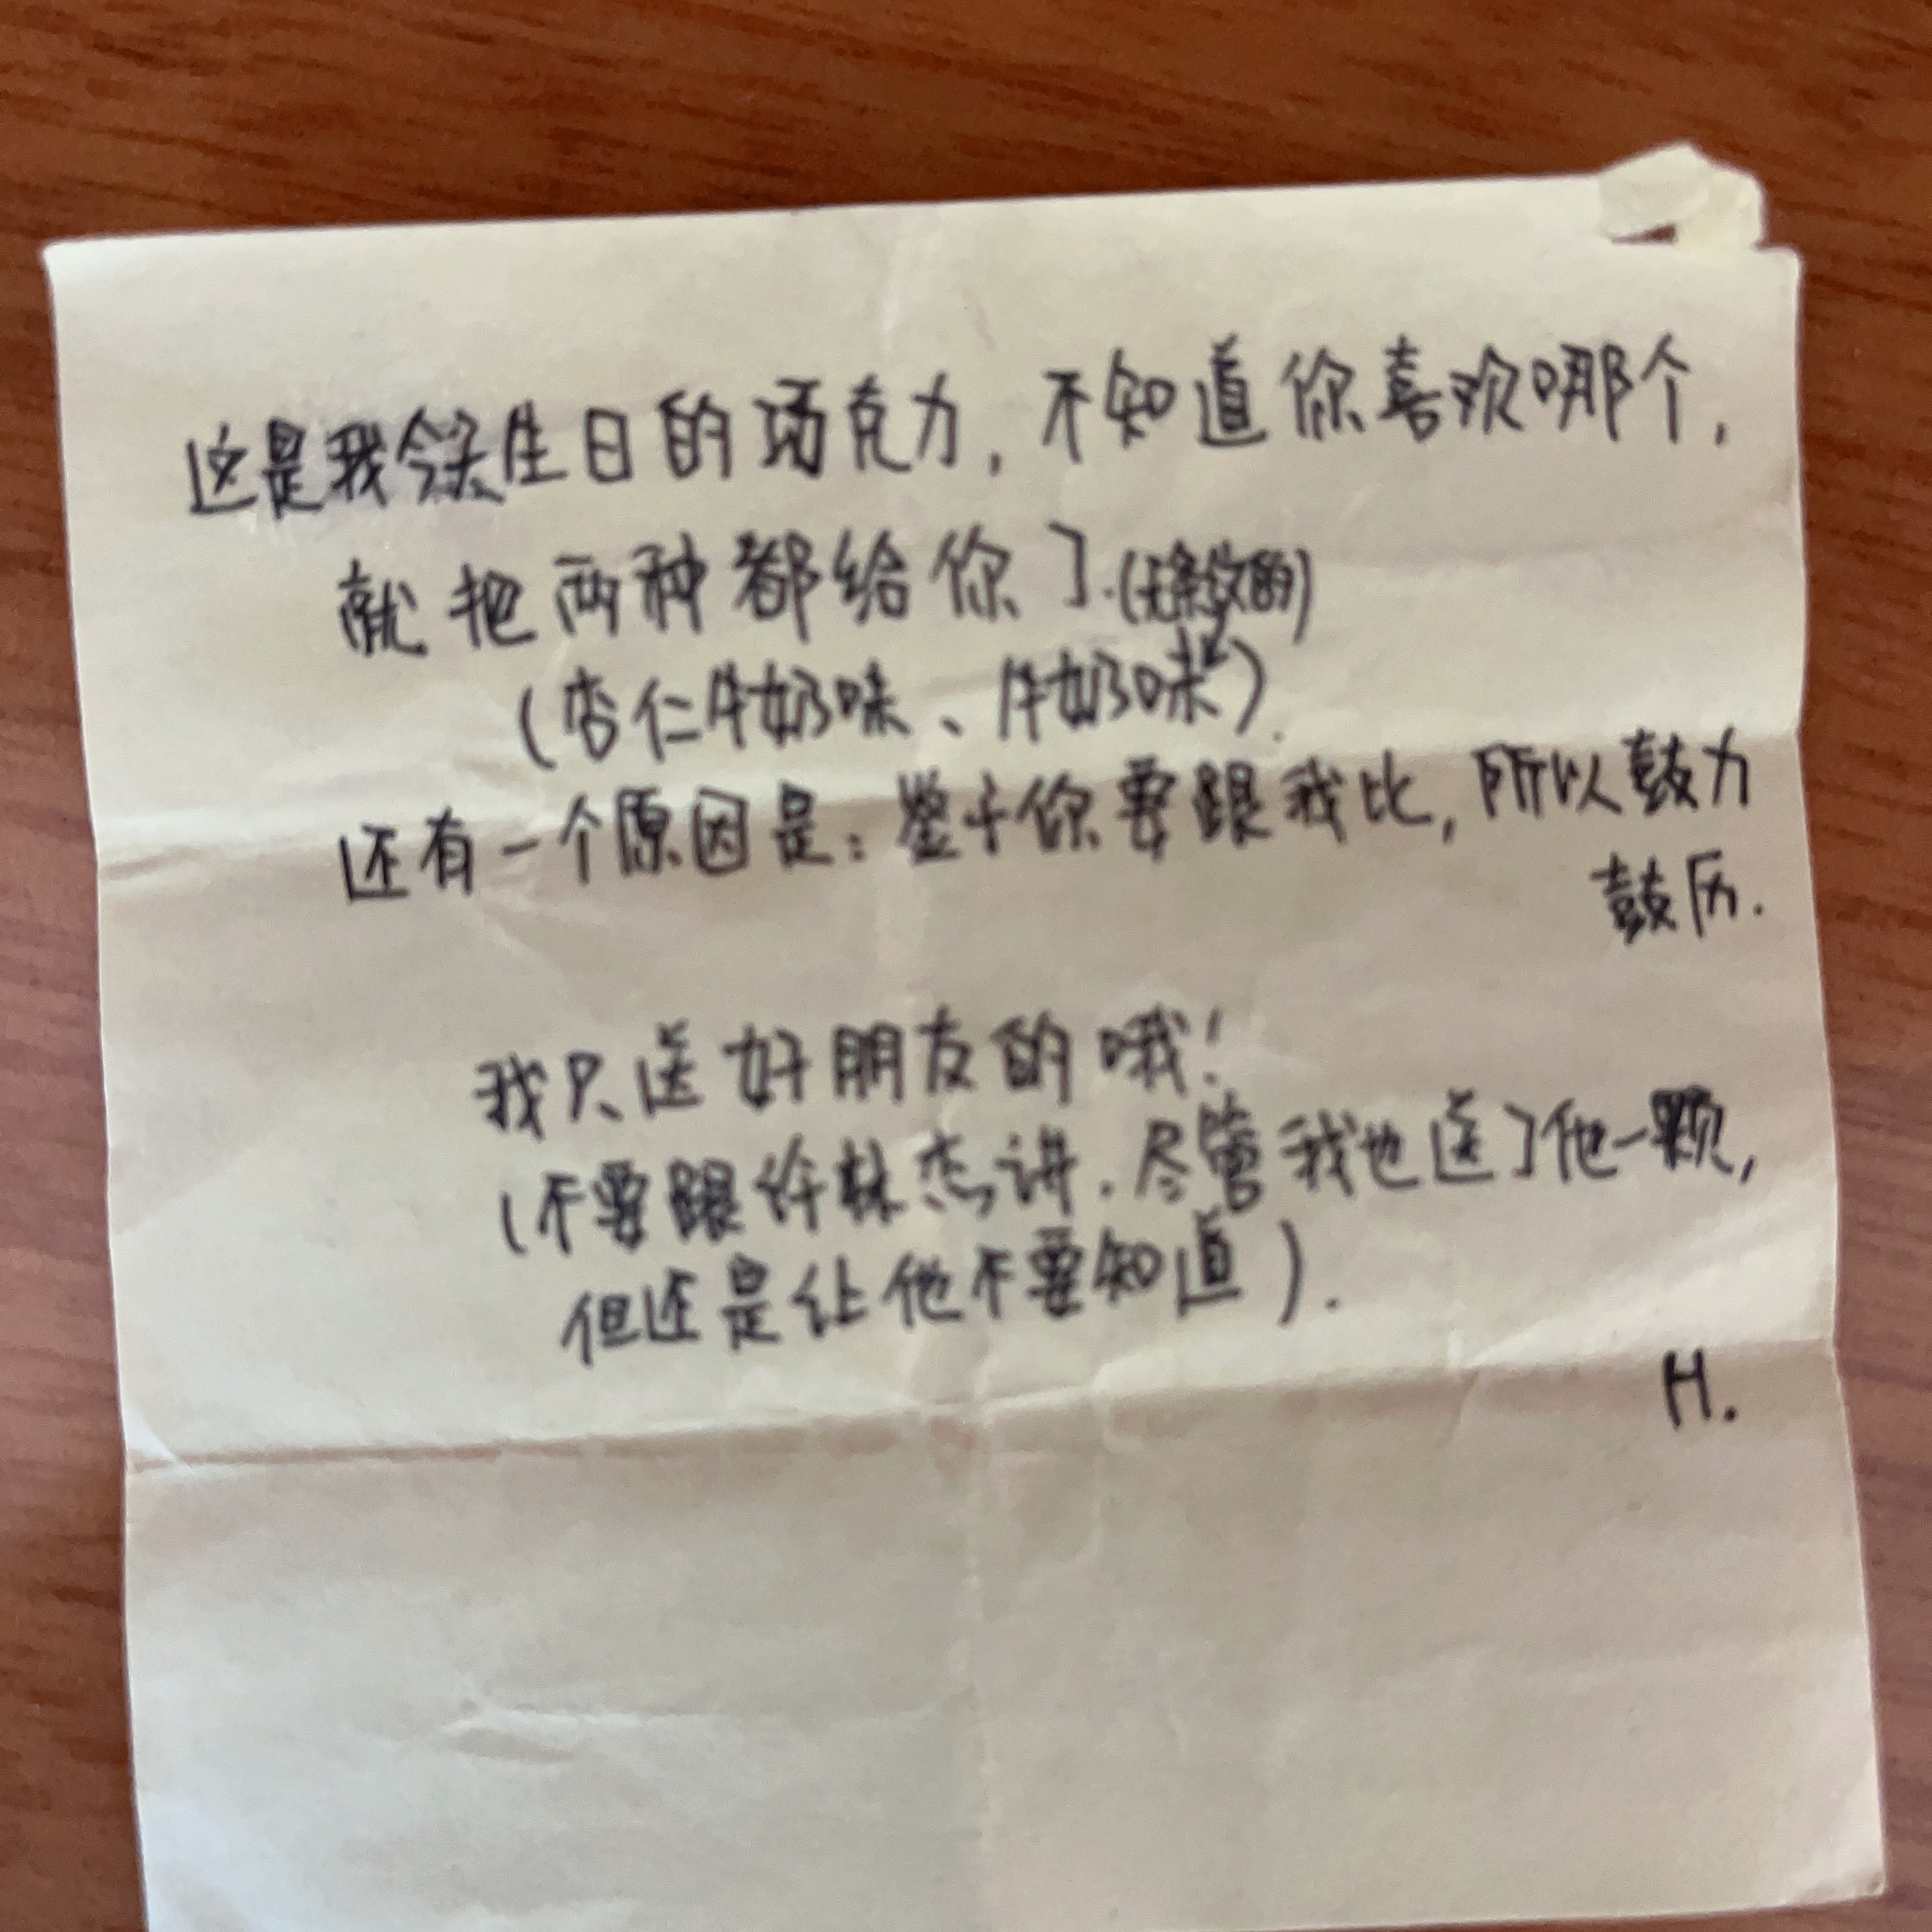 这是我今天生日的巧克力，不知道你喜欢哪个，
就把两种都给你了.(无条纹的)
(杏仁牛奶味、牛奶味).
还有一个原因是：鉴于你要跟我比，所以鼓力
鼓历.
我只送好朋友的哦！
(不要跟许林杰讲.尽管我也送了他一颗，
但还是让他不要知道).
H.